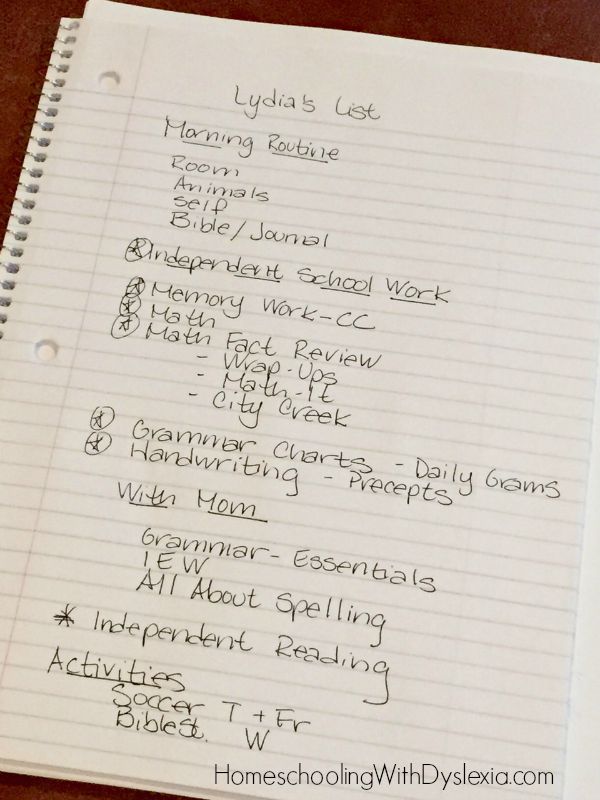 Lydia's List
Morning Routine
Room
Animals
Self
Bible/Journal
* Independent School Work
* Memory Work-CC
* Math
* Math Fact Review
- Wrap-Ups
- Math-It
- City Creek
* Grammar Charts - Daily Grams
* Handwriting - Precepts
With Mom
Grammar- Essentials
IEW
All About Spelling
* Independent Reading
Activities
Soccer T + Fr
Bible St. W
HomeschoolingWithDyslexia.com